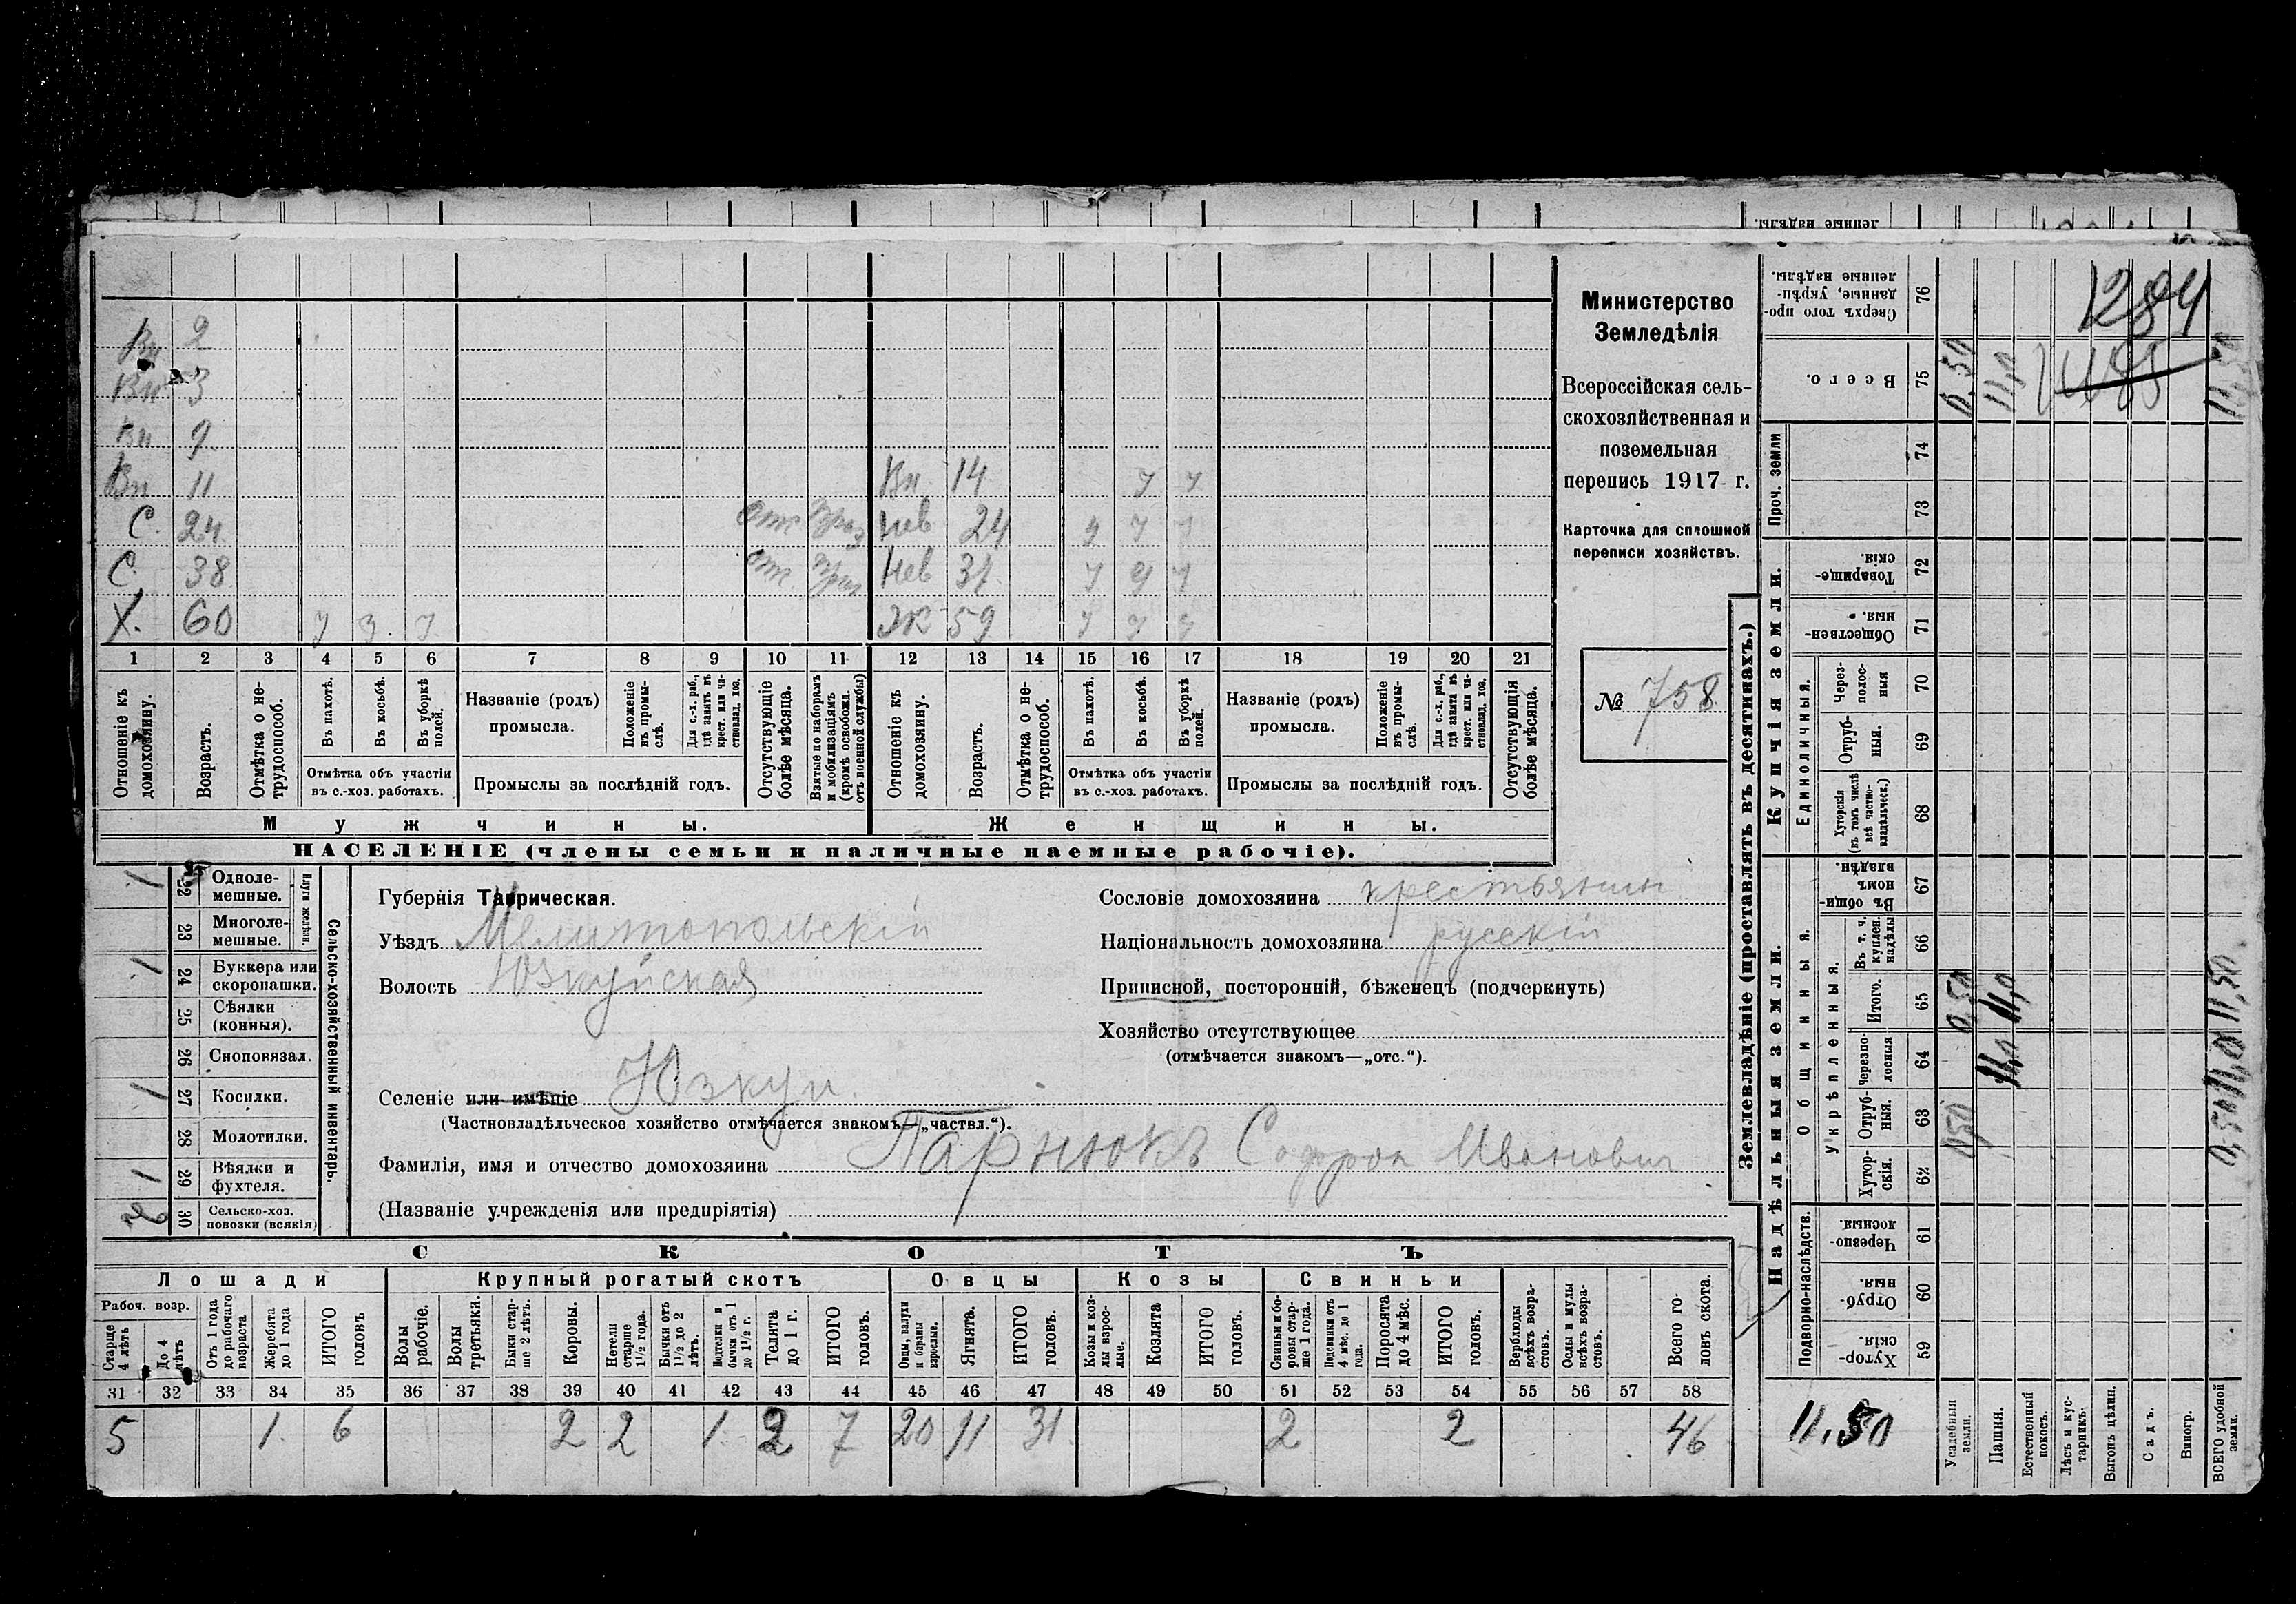 ленные надѣлы.
Вн 2
Вн 3
Вн 9
Вн 11 Вн 14
С. 24 отс Нев 24
С. 38 отс. Нев 37
Х. 60 Ж 59
1 2 3 4 5 6 7 8 9 10 11 12 13 14 15 16 17 18 19 20 21
Отношеніе къ домохозяину.
Возрастъ.
Отмѣтка о нетрудоспособ.
Въ пахотѣ.
Въ косьбѣ.
Въ уборкѣ полей.
Отмѣтка объ участіи въ с.-хоз. работахъ.
Названіе (родъ) промысла.
Положеніе въ промыслѣ.
Для с.-х. раб., гдѣ занятъ въ крест. или частновлад. хоз.
Промыслы за послѣдній годъ.
Отсутствующіе болѣе мѣсяца.
Взятые по наборамъ и мобилизаціямъ (кромѣ освобожд. отъ военной службы)
Отношеніе къ домохозяину.
Возрастъ.
Отмѣтка о нетрудоспособ.
Въ пахотѣ.
Въ косьбѣ.
Въ уборкѣ полей.
Отмѣтка объ участіи въ с.-хоз. работахъ.
Названіе (родъ) промысла.
Положеніе въ промыслѣ.
Для с.-х. раб., гдѣ занята въ крест. или частновлад. хоз.
Промыслы за послѣдній годъ.
Отсутствующія болѣе мѣсяца.
Мужчины.
Женщины.
НАСЕЛЕНІЕ (члены семьи и наличные наемные рабочіе).
Министерство
Земледѣлія
Всероссійская сель-
скохозяйственная и
поземельная
перепись 1917 г.
Карточка для сплошной
переписи хозяйствъ.
№ 758
1 22 Однолемешные.
23 Многолемешные.
Плуги желѣзн.
1 24 Буккера или скоропашки.
25 Сѣялки (конныя).
26 Сноповязал.
1 27 Косилки.
28 Молотилки.
1 29 Вѣялки и фухтеля.
2 30 Сельско-хоз. повозки (всякія)
Сельско-хозяйственный инвентарь.
Губернія Таврическая.
Уѣздъ Мелитопольскій
Волость Юзкуйская
Селеніе или имѣніе Юзкуи
(Частновладѣльческое хозяйство отмѣчается знакомъ—„частвл.“).
Фамилія, имя и отчество домохозяина Парнюкъ Софрон Иванович
(Названіе учрежденія или предпріятія)
Сословіе домохозяина крестьянин
Національность домохозяина русскій
Приписной, посторонній, бѣженецъ (подчеркнуть)
Хозяйство отсутствующее
(отмѣчается знакомъ—„отс.“).
СКОТЪ
Лошади
Крупный рогатый скотъ
Овцы
Козы
Свиньи
Рабоч. возр.
Старше 4 лѣтъ
До 4 лѣтъ
Отъ 1 года до рабочаго возраста
Жеребята до 1 года
ИТОГО головъ
Волы рабочіе.
Волы третьяки.
Быки старше 2 лѣтъ.
Коровы.
Нетели старше 1½ года.
Бычки отъ 1½ до 2 лѣтъ.
Подтелки и бычки отъ 1 до 1½ г.
Телята до 1 г.
ИТОГО головъ.
Овцы, валухи и бараны взрослые.
Ягнята.
ИТОГО головъ.
Козы и козлы взрослые.
Козлята
ИТОГО головъ.
Свиньи и боровы старше 1 года.
Подсвинки отъ 4 мѣс. до 1 года.
Поросята до 4 мѣс.
ИТОГО головъ.
Верблюды всѣхъ возрастовъ.
Ослы и мулы всѣхъ возрастовъ.
Всего головъ скота.
31 32 33 34 35 36 37 38 39 40 41 42 43 44 45 46 47 48 49 50 51 52 53 54 55 56 57 58
5 1 6 2 2 1 2 7 20 11 31 2 2 46
Землевладѣніе (проставлять въ десятинахъ.)
Купчія земли.
Надѣльныя земли.
Проч. земли
Единоличныя.
Общинныя.
Укрѣпленныя.
Подворно-наслѣдств.
Сверхъ того проданные, укрѣпленные надѣлы. 76 1284
Всего. 75 0,50 11,0 11,50
74
73
Товарищескія. 72
Общественныя. 71
Черезполосныя 70
Отрубныя. 69
Хуторскія (въ томъ числѣ всѣ частновладѣльческ.) 68
Въ общинномъ владѣн. 67
Въ т. ч. куплен. надѣлы 66
Итого. 65 0,50 11,0 11,50
Черезполосныя 64 11,0 11,0
Отрубныя. 63 0,50 0,50
Хуторскія. 62
Черезполосныя. 61
Отрубныя. 60
Хуторскія. 59
11,50
Усадебныя земли.
Пашня.
Естественный покосъ.
Лѣсъ и кустарникъ.
Выгонъ цѣлин.
Садъ.
Виногр.
ВСЕГО удобной земли.